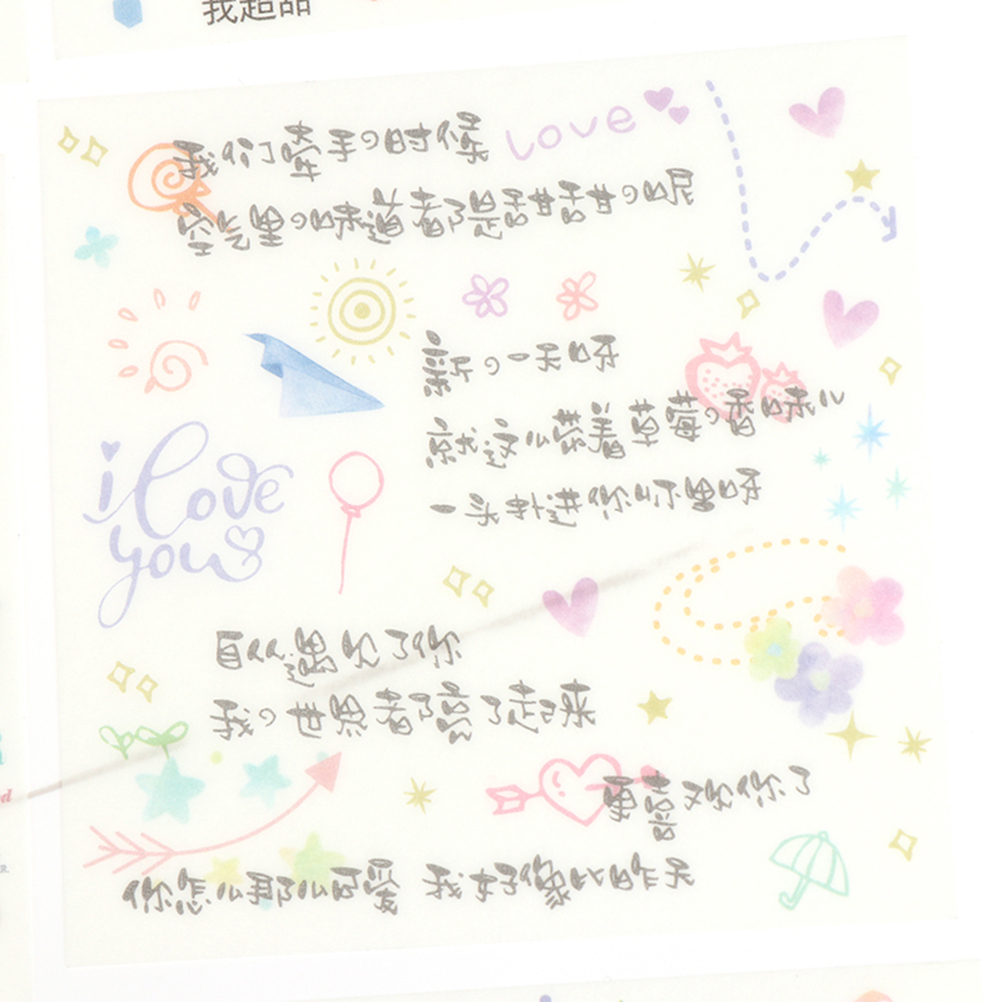 我超甜
我们牵手の时候
love
空气里の味道都是甜甜の呢
新の一天呀
就这么带着草莓の香味儿
一头扑进你怀里呀
i love
you
自从遇见了你
我の世界都亮了起来
更喜欢你了
你怎么那么可爱 我好像比昨天